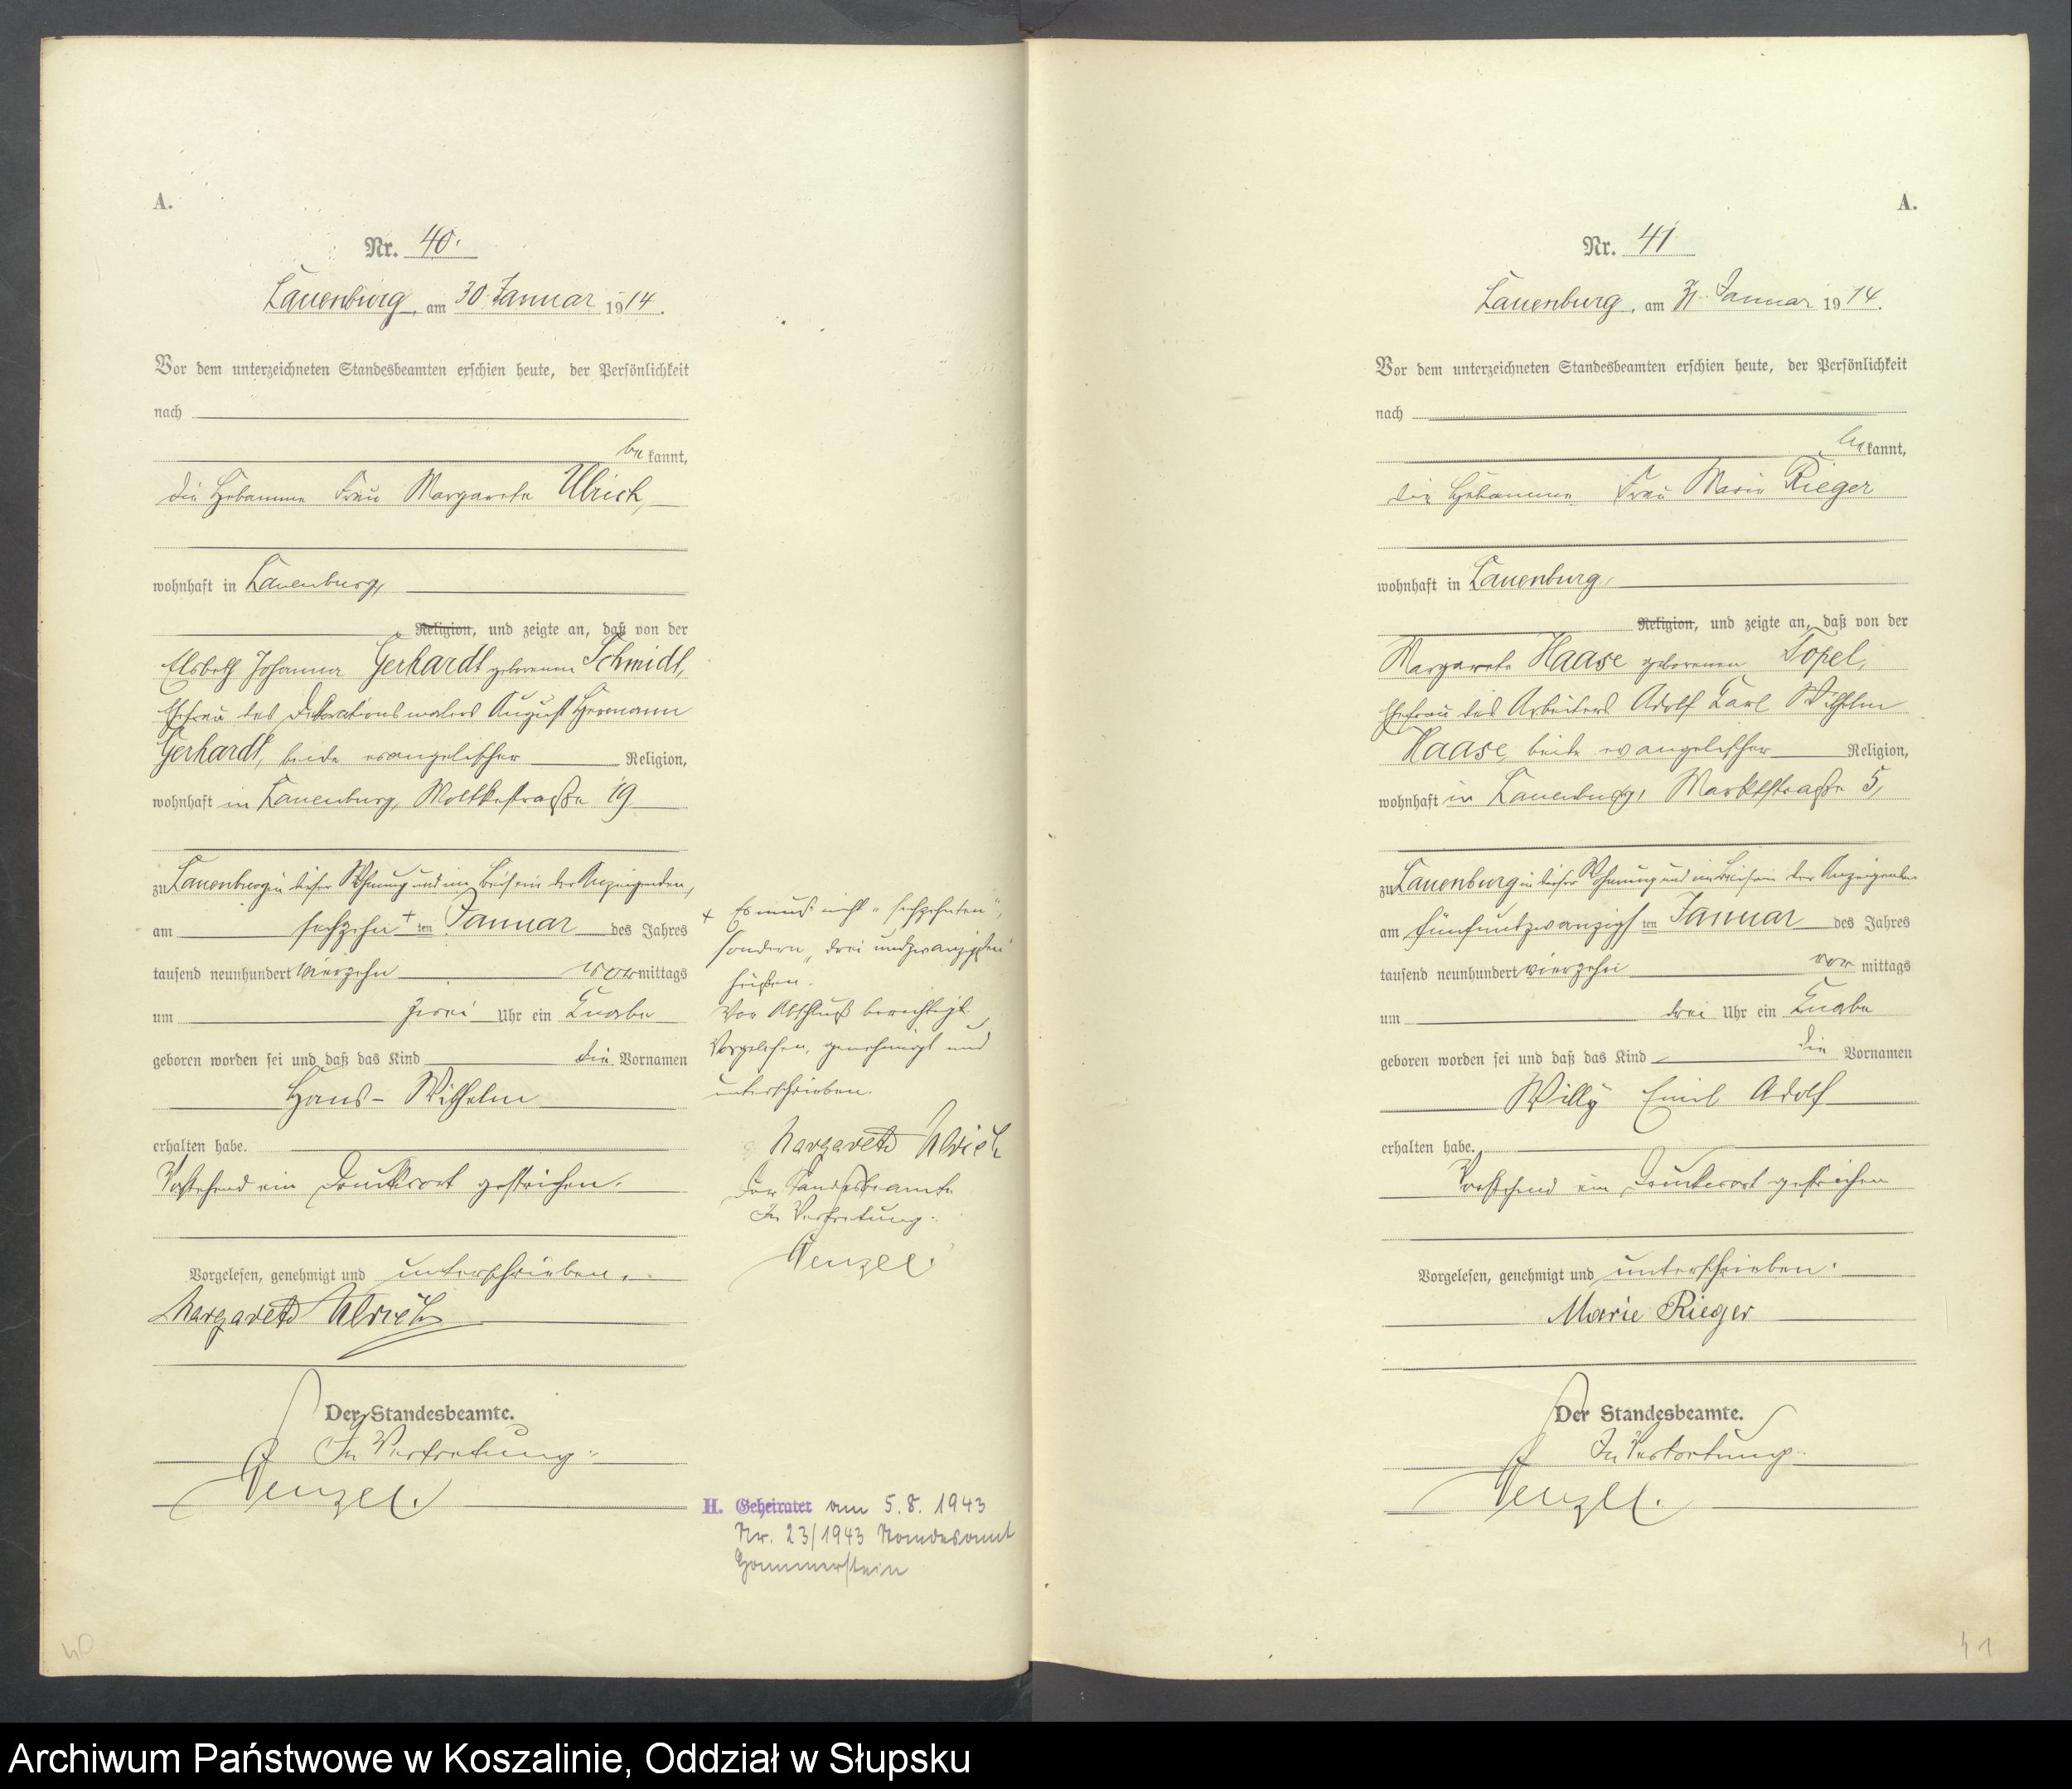 A.
Nr. 40.
Lauenburg, am 30. Januar 1914.
Vor dem unterzeichneten Standesbeamten erschien heute, der Persönlichkeit
nach
bekannt,
die Hebamme Frau Margarete Ulrich,
wohnhaft in Lauenburg,
Religion, und zeigte an, daß von der
Elsbeth Johanna Gerhardt geborenen Schmidt,
Ehefrau des Dekorationsmalers August Hermann
Gerhardt, beide evangelischer Religion,
wohnhaft in Lauenburg, Moltkestraße 19
zu Lauenburg in dieser Wohnung und im Beisein der Anzeigenden,
am sechzehn + ten Januar des Jahres
tausend neunhundert vierzehn vormittags
um zwei Uhr ein Knabe
geboren worden sei und daß das Kind die Vornamen
Hans-Wilhelm
erhalten habe.
Vorstehend ein Druckwort gestrichen.
Vorgelesen, genehmigt und unterschrieben.
Margarete Ulrich
Der Standesbeamte.
In Vertretung:
Wenzel.
+ Es muß nicht "sechzehnten",
sondern "dreiundzwanzigsten"
heißen.
Vor Abschluß berichtigt.
Vorgelesen, genehmigt und
unterschrieben.
Margarete Ulrich
Der Standesbeamte
In Vertretung:
Wenzel.
H. Geheiratet am 5.8.1943
Nr. 23/1943 Standesamt
40
A.
Nr. 41
Lauenburg, am 31. Januar 1914.
Vor dem unterzeichneten Standesbeamten erschien heute, der Persönlichkeit
nach
bekannt,
die Hebamme Frau Marie Rieger
wohnhaft in Lauenburg,
Religion, und zeigte an, daß von der
Margarete Haase geborenen Topel,
Ehefrau des Arbeiters Adolf Karl Wilhelm
Haase, beide evangelischer Religion,
wohnhaft in Lauenburg, Marktstraße 5,
zu Lauenburg in dieser Wohnung und im Beisein der Anzeigenden
am fünfundzwanzigsten Januar des Jahres
tausend neunhundert vierzehn vormittags
um drei Uhr ein Knabe
geboren worden sei und daß das Kind die Vornamen
Willy Emil Adolf
erhalten habe.
Vorstehend ein Druckwort gestrichen
Vorgelesen, genehmigt und unterschrieben.
Marie Rieger
Der Standesbeamte.
In Vertretung:
Wenzel.
41
Archiwum Państwowe w Koszalinie, Oddział w Słupsku